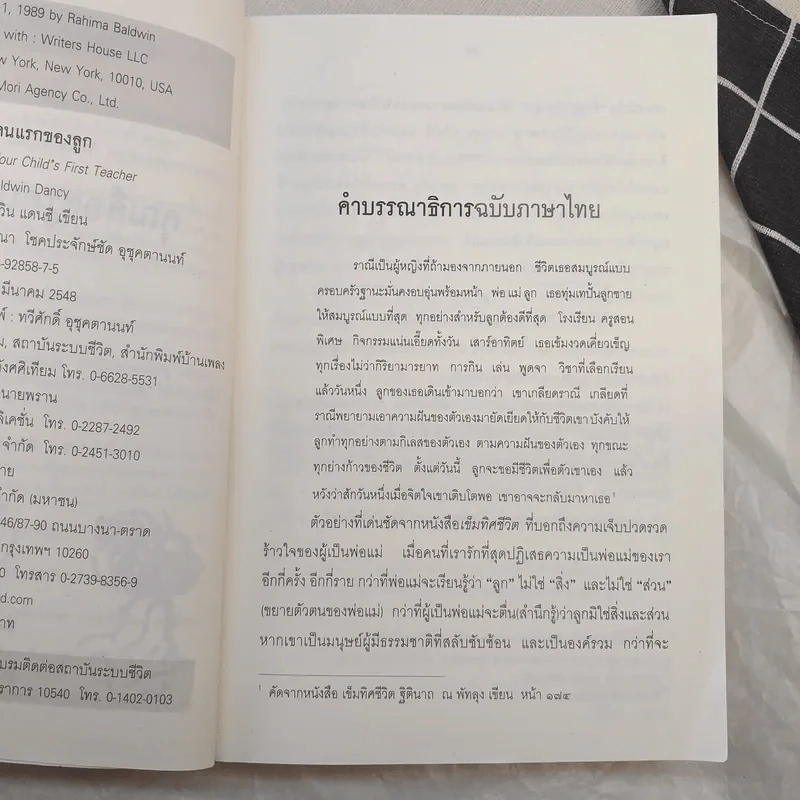 1, 1989 by Rahima Baldwin
with : Writers House LLC
York, New York, 10010, USA
Mori Agency Co., Ltd.
คนแรกของลูก
Your Child's First Teacher
Baldwin Dancy
วิน แดนซี เขียน
ณา โชคประจักษ์ชัด อุชุคตานนท์
-92858-7-5
มีนาคม 2548
พ์ : ทวีศักดิ์ อุชุคตานนท์
ม, สถาบันระบบชีวิต, สำนักพิมพ์บ้านเพลง
ังศศิเทียม โทร. 0-6628-5531
นายพราน
ลิเคชั่น โทร. 0-2287-2492
จำกัด โทร. 0-2451-3010
าย
จำกัด (มหาชน)
46/87-90 ถนนบางนา-ตราด
กรุงเทพฯ 10260
0 โทรสาร 0-2739-8356-9
d.com
าท
บรมติดต่อสถาบันระบบชีวิต
ราการ 10540 โทร. 0-1402-0103
คำบรรณาธิการฉบับภาษาไทย
ราณีเป็นผู้หญิงที่ถ้ามองจากภายนอก ชีวิตเธอสมบูรณ์แบบ
ครอบครัวฐานะมั่นคงอบอุ่นพร้อมหน้า พ่อ แม่ ลูก เธอทุ่มเทปั้นลูกชาย
ให้สมบูรณ์แบบที่สุด ทุกอย่างสำหรับลูกต้องดีที่สุด โรงเรียน ครูสอน
พิเศษ กิจกรรมแน่นเอี๊ยดทั้งวัน เสาร์อาทิตย์ เธอเข้มงวดเคี่ยวเข็ญ
ทุกเรื่องไม่ว่ากิริยามารยาท การกิน เล่น พูดจา วิชาที่เลือกเรียน
แล้ววันหนึ่ง ลูกของเธอเดินเข้ามาบอกว่า เขาเกลียดราณี เกลียดที่
ราณีพยายามเอาความฝันของตัวเองมายัดเยียดให้กับชีวิตเขา บังคับให้
ลูกทำทุกอย่างตามกิเลสของตัวเอง ตามความฝันของตัวเอง ทุกขณะ
ทุกย่างก้าวของชีวิต ตั้งแต่วันนี้ ลูกจะขอมีชีวิตเพื่อตัวเขาเอง แล้ว
หวังว่าสักวันหนึ่งเมื่อจิตใจเขาเติบโตพอ เขาอาจจะกลับมาหาเธอ¹
ตัวอย่างที่เด่นชัดจากหนังสือเข็มทิศชีวิต ที่บอกถึงความเจ็บปวดรวด
ร้าวใจของผู้เป็นพ่อแม่ เมื่อคนที่เรารักที่สุดปฏิเสธความเป็นพ่อแม่ของเรา
อีกกี่ครั้ง อีกกี่ราย กว่าที่พ่อแม่จะเรียนรู้ว่า “ลูก” ไม่ใช่ “สิ่ง” และไม่ใช่ “ส่วน”
(ขยายตัวตนของพ่อแม่) กว่าที่ผู้เป็นพ่อแม่จะตื่น(สำนึกรู้)ว่าลูกมิใช่สิ่งและส่วน
หากเขาเป็นมนุษย์ผู้มีธรรมชาติที่สลับซับซ้อน และเป็นองค์รวม กว่าที่จะ
¹ คัดจากหนังสือ เข็มทิศชีวิต ฐิตินาถ ณ พัทลุง เขียน หน้า ๑๗๔